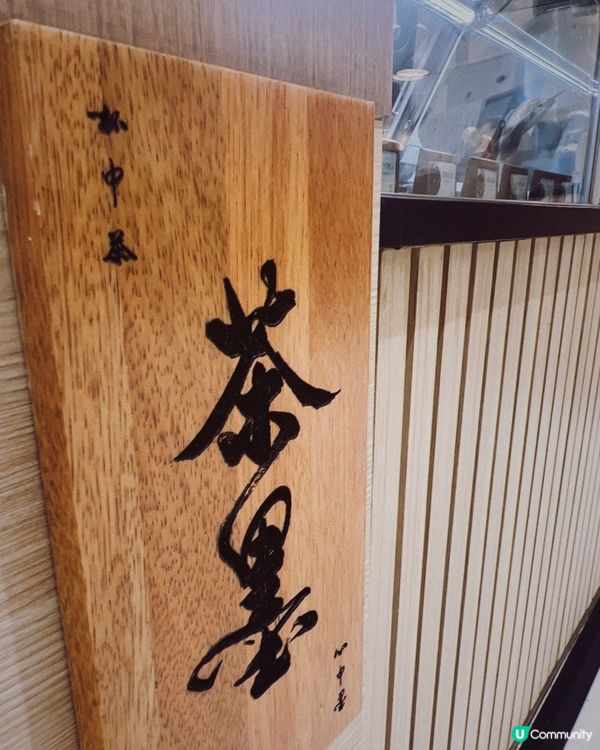 杯中茶
茶墨
心中墨
U Community